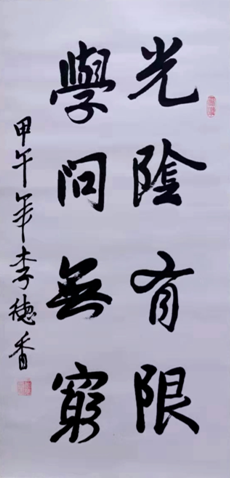 光陰有限
學問無窮
甲午年李德香